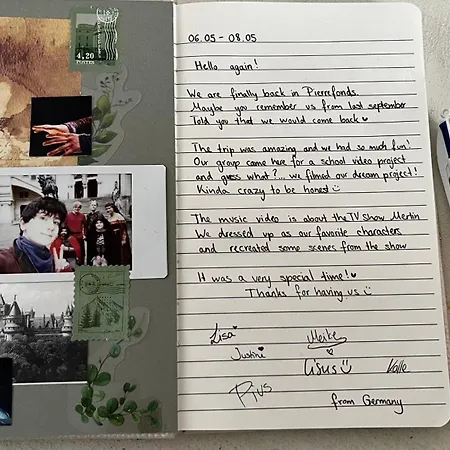 4.20
06.05 - 08.05
Hello again!
We are finally back in Pierrefonds.
Maybe you remember us from last september
Told you that we would come back ♥
The trip was amazing and we had so much fun!
Our group came here for a school video project
and guess what?... we filmed our dream project!
Kinda crazy to be honest ☺
The music video is about the TV Show Merlin
We dressed up as our favorite characters
and recreated some scenes from the show
It was a very special time! ♥
Thanks for having us ☺
Lisa
Meike
Justine
Kalle
Pius
from Germany